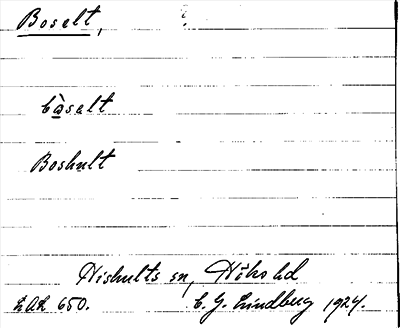 Boselt, ?
bàselt
Boshult
Hishults sn, Höks hd
LAL 650. C. G. Lindberg 1924.